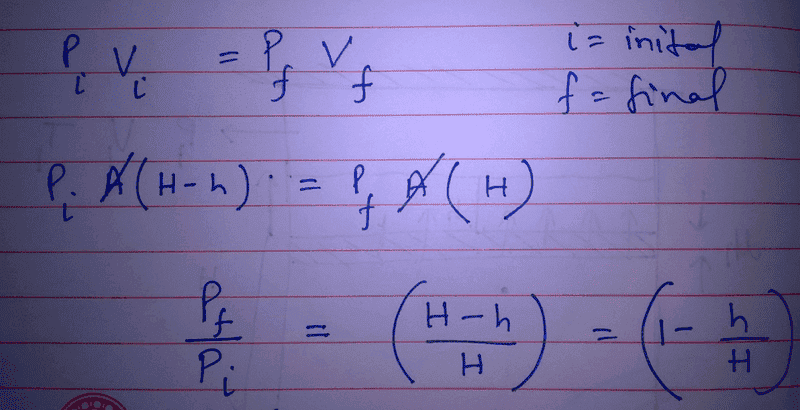 P_i V_i = P_f V_f i = inital
f = final
P_i A(H-h) = P_f A(H)
P_f/P_i = (H-h/H) = (1-h/H)